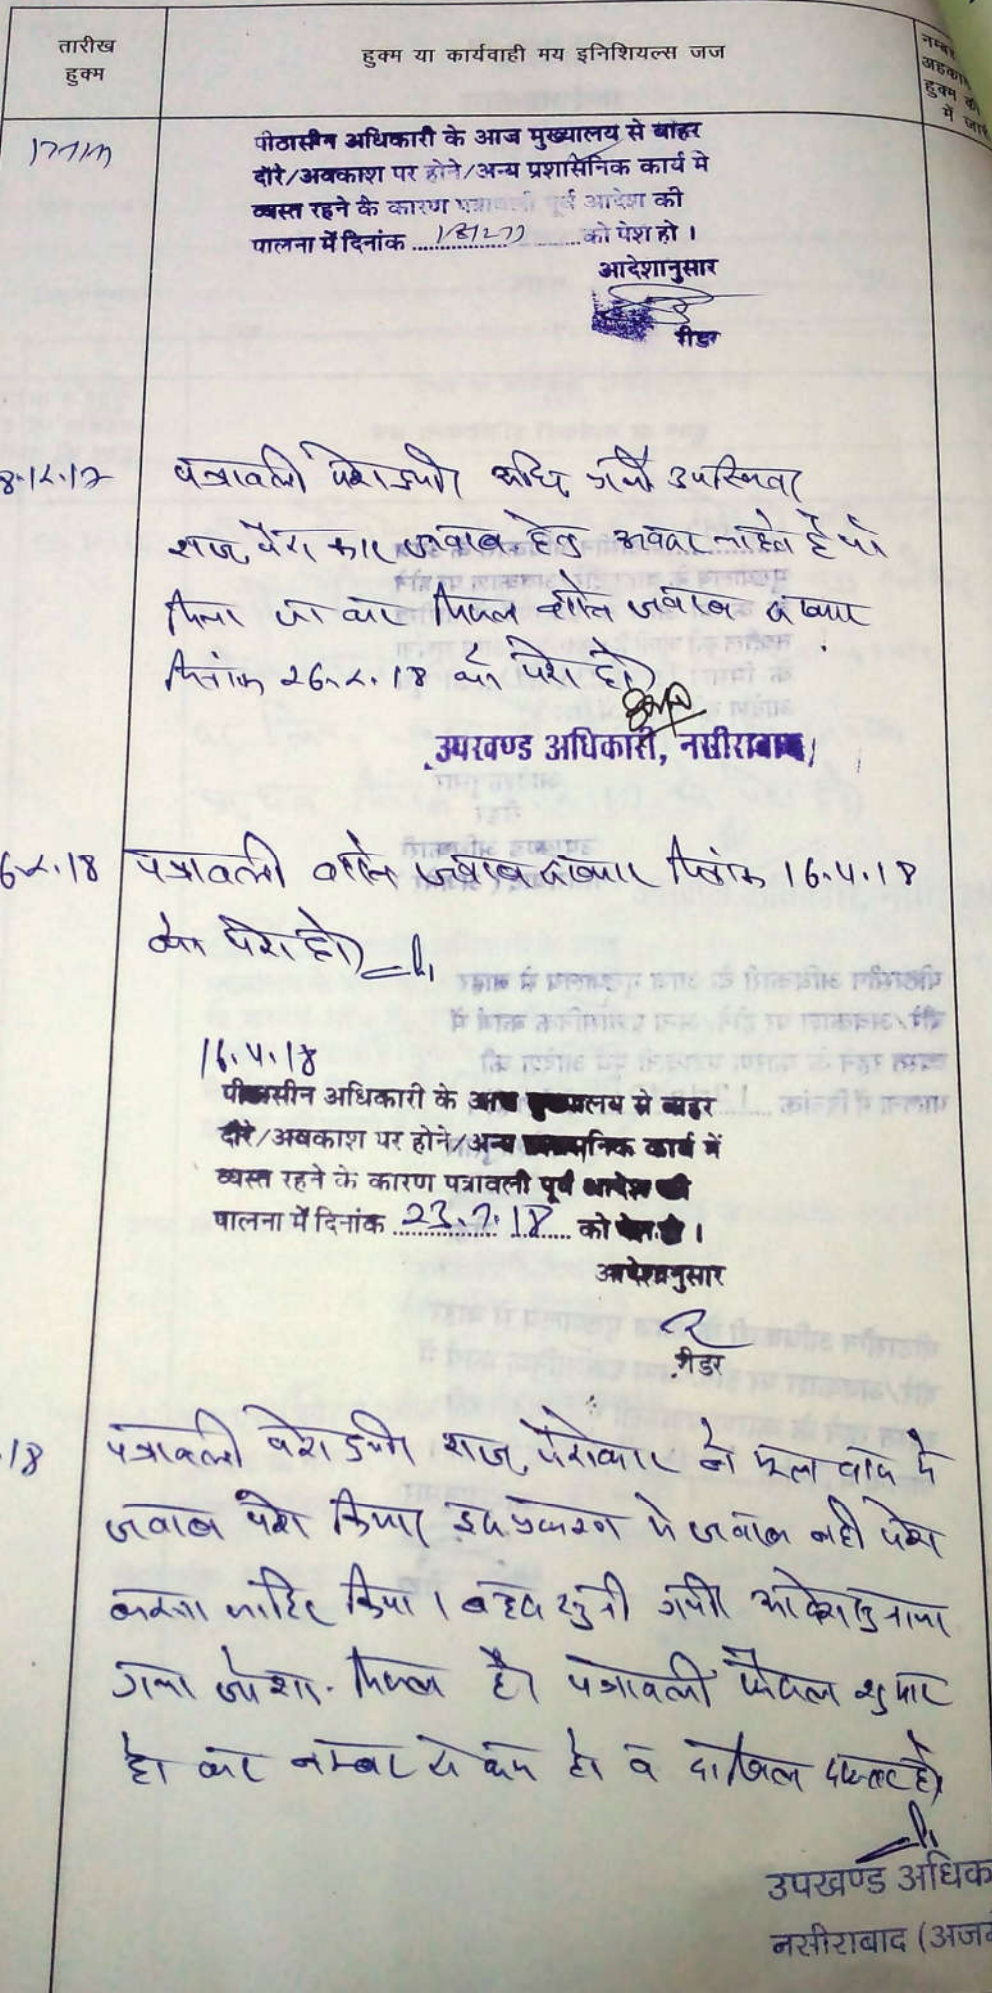 तारीख
हुक्म
हुक्म या कार्यवाही मय इनिशियल्स जज
नम्बर
अहकाम
हुक्म की
में जारी
पीठासीन अधिकारी के आज मुख्यालय से बाहर
दौरे/अवकाश पर होने/अन्य प्रशासनिक कार्य मे
व्यस्त रहने के कारण पत्रावली पूर्व आदेश की
पालना में दिनांक को पेश हो ।
आदेशानुसार
रीडर
8.12.17
पत्रावली पेश हुयी उपस्थित
राज. पैरोकार जवाब हेतु अवसर चाहते है जो
दिया जा कर मिसल वास्ते जवाब
दिनांक 26.2.18 को पेश हो।
उपखण्ड अधिकारी, नसीराबाद
6.2.18
पत्रावली वास्ते जवाब दिनांक 16.4.18
को पेश हो।
16.4.18
पीठासीन अधिकारी के आज मुख्यालय से बाहर
दौरे/अवकाश पर होने/अन्य प्रशासनिक कार्य में
व्यस्त रहने के कारण पत्रावली पूर्व आदेश की
पालना में दिनांक 23.7.18 को पेश हो ।
आदेशानुसार
रीडर
.18
पत्रावली पेश हुयी राज. पैरोकार ने मूल वाद मे
जवाब पेश किया। इस प्रकरण मे जवाब नही पेश
करना जाहिर किया। बहस सुनी गयी आदेश सुनाया
गया जो शा. मिसल है। पत्रावली फैसल शुमार
हो कर नम्बर से कम हो व दाखिल दफ्तर हो।
उपखण्ड अधिक
नसीराबाद (अजमे